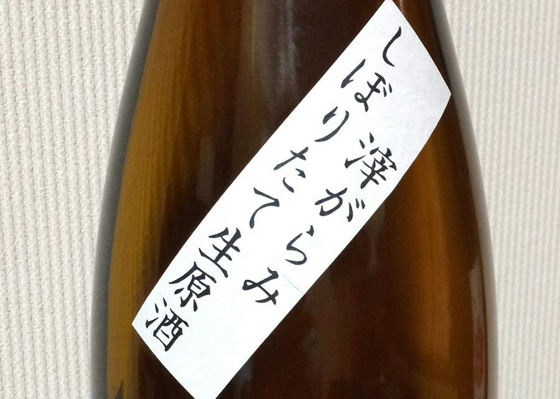 滓がらみ
しぼりたて生原酒